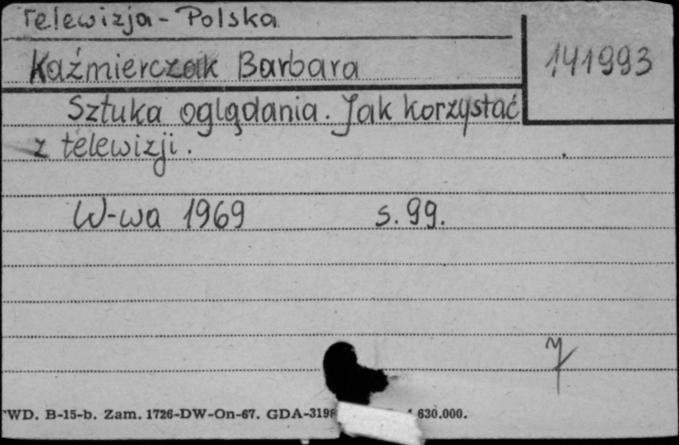 Telewizja - Polska
Kaźmierczak Barbara
141993
Sztuka oglądania. Jak korzystać
z telewizji.
W-wa 1969 s. 99.
WD. B-15-b. Zam. 1726-DW-On-67. GDA-3198 630.000.